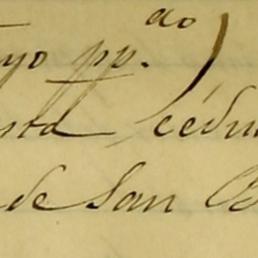 yo pp.do
sta cédu
de San